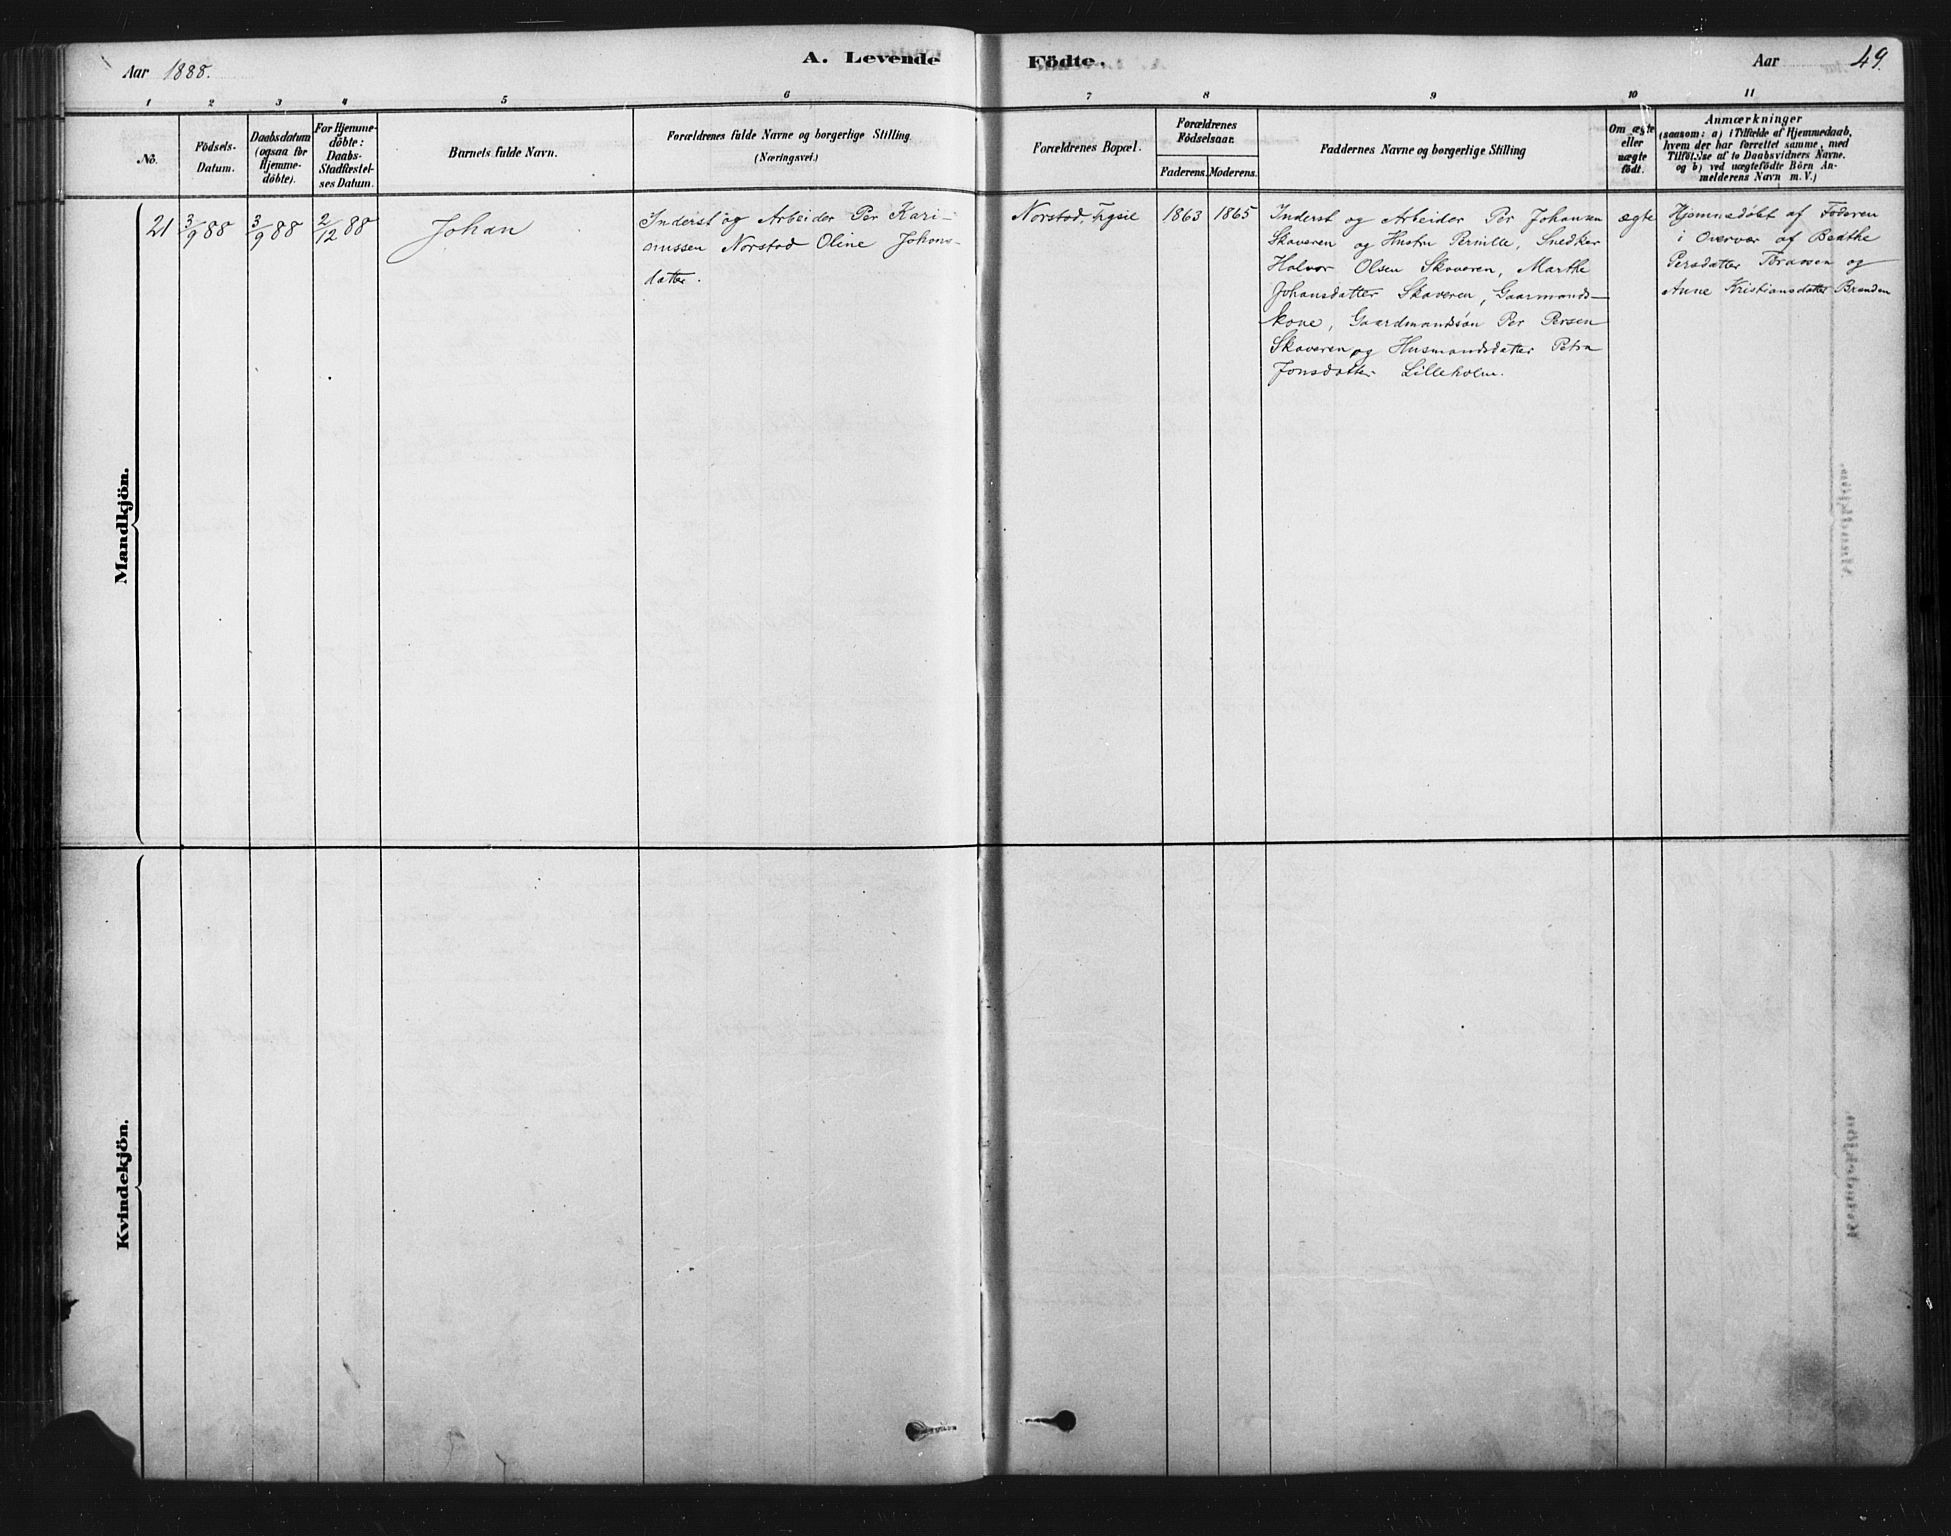 Aar 1888.
A. Levende
Födte.
Aar
49.
1
2
3
4
5
6
7
8
9
10
11
No.
Födsels-
Datum.
Daabsdatum
(ogsaa for
Hjemme-
döbte).
For Hjemme-
döbte:
Daabs-
Stadfæstel-
ses Datum.
Barnets fulde Navn.
Forældrenes fulde Navne og borgerlige Stilling
(Næringsvei.)
Forældrenes Bopæl.
Forældrenes
Födselsaar.
Faderens.
Moderens.
Faddernes Navne og borgerlige Stilling
Om ægte
eller
uægte
födt.
Anmærkninger
(saasom: a) i Tilfælde af Hjemmedaab,
hvem der har forrettet samme, med
Tilföielse af to Daabsvidners Navne.
og b) ved uægtefödte Börn An-
melderens Navn m. V.)
Mandkjön.
21
3/9 88
3/9 88
2/12 88
Johan
Inderst og Arbeider Per Kari-
nussen Norstad Oline Johans-
datter.
Norstad, Trysil
1863
1865
Inderst og Arbeider Per Johansen
Skaveren og Hustru Pernille, Snedker
Halvor Olsen Skaveren, Marthe
Johansdatter Skaveren, Gaarmands-
kone, Gaardmandssön Per Persen
Skaveren og Husmandsdatter Petra
Jonsdatter Lilleholm.
ægte
Hjemmedöbt af Faderen
i Overvær af Berthe
Persdatter og
Anne Kristiansdatter Brenden
Kvindekjön.